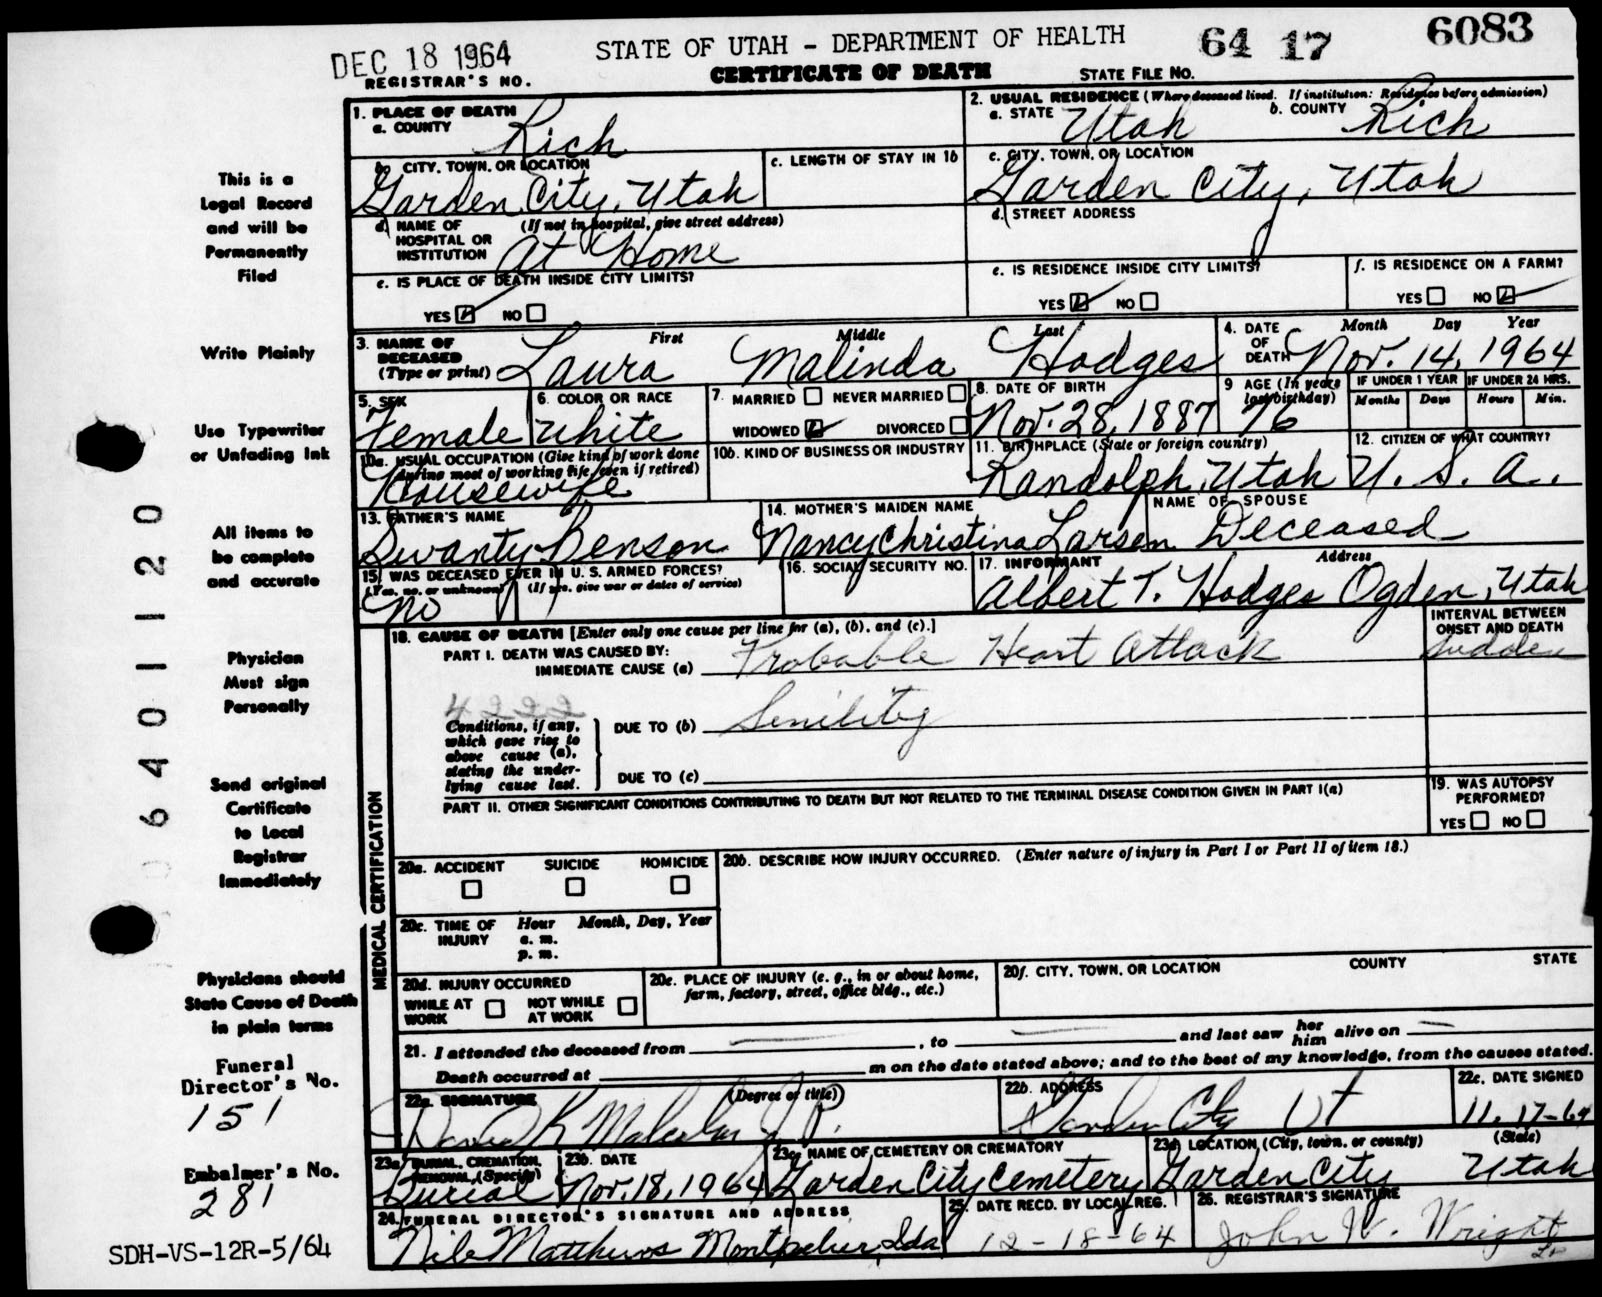 DEC 18 1964
STATE OF UTAH - DEPARTMENT OF HEALTH
64 17 6083
REGISTRAR'S NO.
CERTIFICATE OF DEATH
STATE FILE NO.
This is a
Legal Record
and will be
Permanently
Filed
Write Plainly
Use Typewriter
or Unfading Ink
All items to
be complete
and accurate
Physician
Must sign
Personally
Send original
Certificate
to Local
Registrar
Immediately
Physicians should
State Cause of Death
in plain terms
Funeral
Director's No.
151
Embalmer's No.
281
SDH-VS-12R-5/64
64011120
1. PLACE OF DEATH
a. COUNTY
Rich
2. USUAL RESIDENCE (Where deceased lived. If institution: Residence before admission)
a. STATE Utah b. COUNTY Rich
b. CITY, TOWN, OR LOCATION
Garden City, Utah
c. LENGTH OF STAY IN 1b
c. CITY, TOWN, OR LOCATION
Garden City, Utah
d. NAME OF HOSPITAL OR INSTITUTION (If not in hospital, give street address)
At Home
d. STREET ADDRESS
e. IS PLACE OF DEATH INSIDE CITY LIMITS?
YES NO
e. IS RESIDENCE INSIDE CITY LIMITS?
YES NO
f. IS RESIDENCE ON A FARM?
YES NO
3. NAME OF DECEASED (Type or print)
First Middle Last
Laura Malinda Hodges
4. DATE OF DEATH
Month Day Year
Nov. 14, 1964
5. SEX
Female
6. COLOR OR RACE
White
7. MARRIED NEVER MARRIED
WIDOWED DIVORCED
8. DATE OF BIRTH
Nov. 28, 1887
9 AGE (In years last birthday)
76
IF UNDER 1 YEAR
Months Days
IF UNDER 24 HRS.
Hours Min.
10a. USUAL OCCUPATION (Give kind of work done during most of working life, even if retired)
Housewife
10b. KIND OF BUSINESS OR INDUSTRY
11. BIRTHPLACE (State or foreign country)
Randolph, Utah
12. CITIZEN OF WHAT COUNTRY?
U. S. A.
13. FATHER'S NAME
Swanty Benson
14. MOTHER'S MAIDEN NAME
Nancy Christina Larsen
NAME OF SPOUSE
Deceased
15. WAS DECEASED EVER IN U. S. ARMED FORCES?
(Yes, no, or unknown) (If yes, give war or dates of service)
No
16. SOCIAL SECURITY NO.
17. INFORMANT Address
Albert T. Hodges Ogden, Utah
MEDICAL CERTIFICATION
18. CAUSE OF DEATH [Enter only one cause per line for (a), (b), and (c).]
PART I. DEATH WAS CAUSED BY:
IMMEDIATE CAUSE (a) Probable Heart Attack
INTERVAL BETWEEN ONSET AND DEATH
Sudden
4222
Conditions, if any,
which gave rise to
above cause (a),
stating the under-
lying cause last.
DUE TO (b) Senility
DUE TO (c)
PART II. OTHER SIGNIFICANT CONDITIONS CONTRIBUTING TO DEATH BUT NOT RELATED TO THE TERMINAL DISEASE CONDITION GIVEN IN PART I(a)
19. WAS AUTOPSY PERFORMED?
YES NO
20a. ACCIDENT SUICIDE HOMICIDE
20b. DESCRIBE HOW INJURY OCCURRED. (Enter nature of injury in Part I or Part II of item 18.)
20c. TIME OF INJURY
Hour Month, Day, Year
a. m.
p. m.
20d. INJURY OCCURRED
WHILE AT WORK NOT WHILE AT WORK
20e. PLACE OF INJURY (e. g., in or about home, farm, factory, street, office bldg., etc.)
20f. CITY, TOWN, OR LOCATION COUNTY STATE
21. I attended the deceased from , to and last saw her him alive on
Death occurred at m on the date stated above; and to the best of my knowledge, from the causes stated.
22a. SIGNATURE (Degree or title)
J.P.
22b. ADDRESS
Garden City Ut
22c. DATE SIGNED
11-17-64
23a BURIAL, CREMATION, REMOVAL, (Specify)
Burial
23b. DATE
Nov. 18, 1964
23c. NAME OF CEMETERY OR CREMATORY
Garden City Cemetery
23d LOCATION (City, town, or county) (State)
Garden City Utah
24. FUNERAL DIRECTOR'S SIGNATURE AND ADDRESS
Matthews Montpelier, Ida
25. DATE RECD. BY LOCAL REG.
12-18-64
26. REGISTRAR'S SIGNATURE
John W. Wright